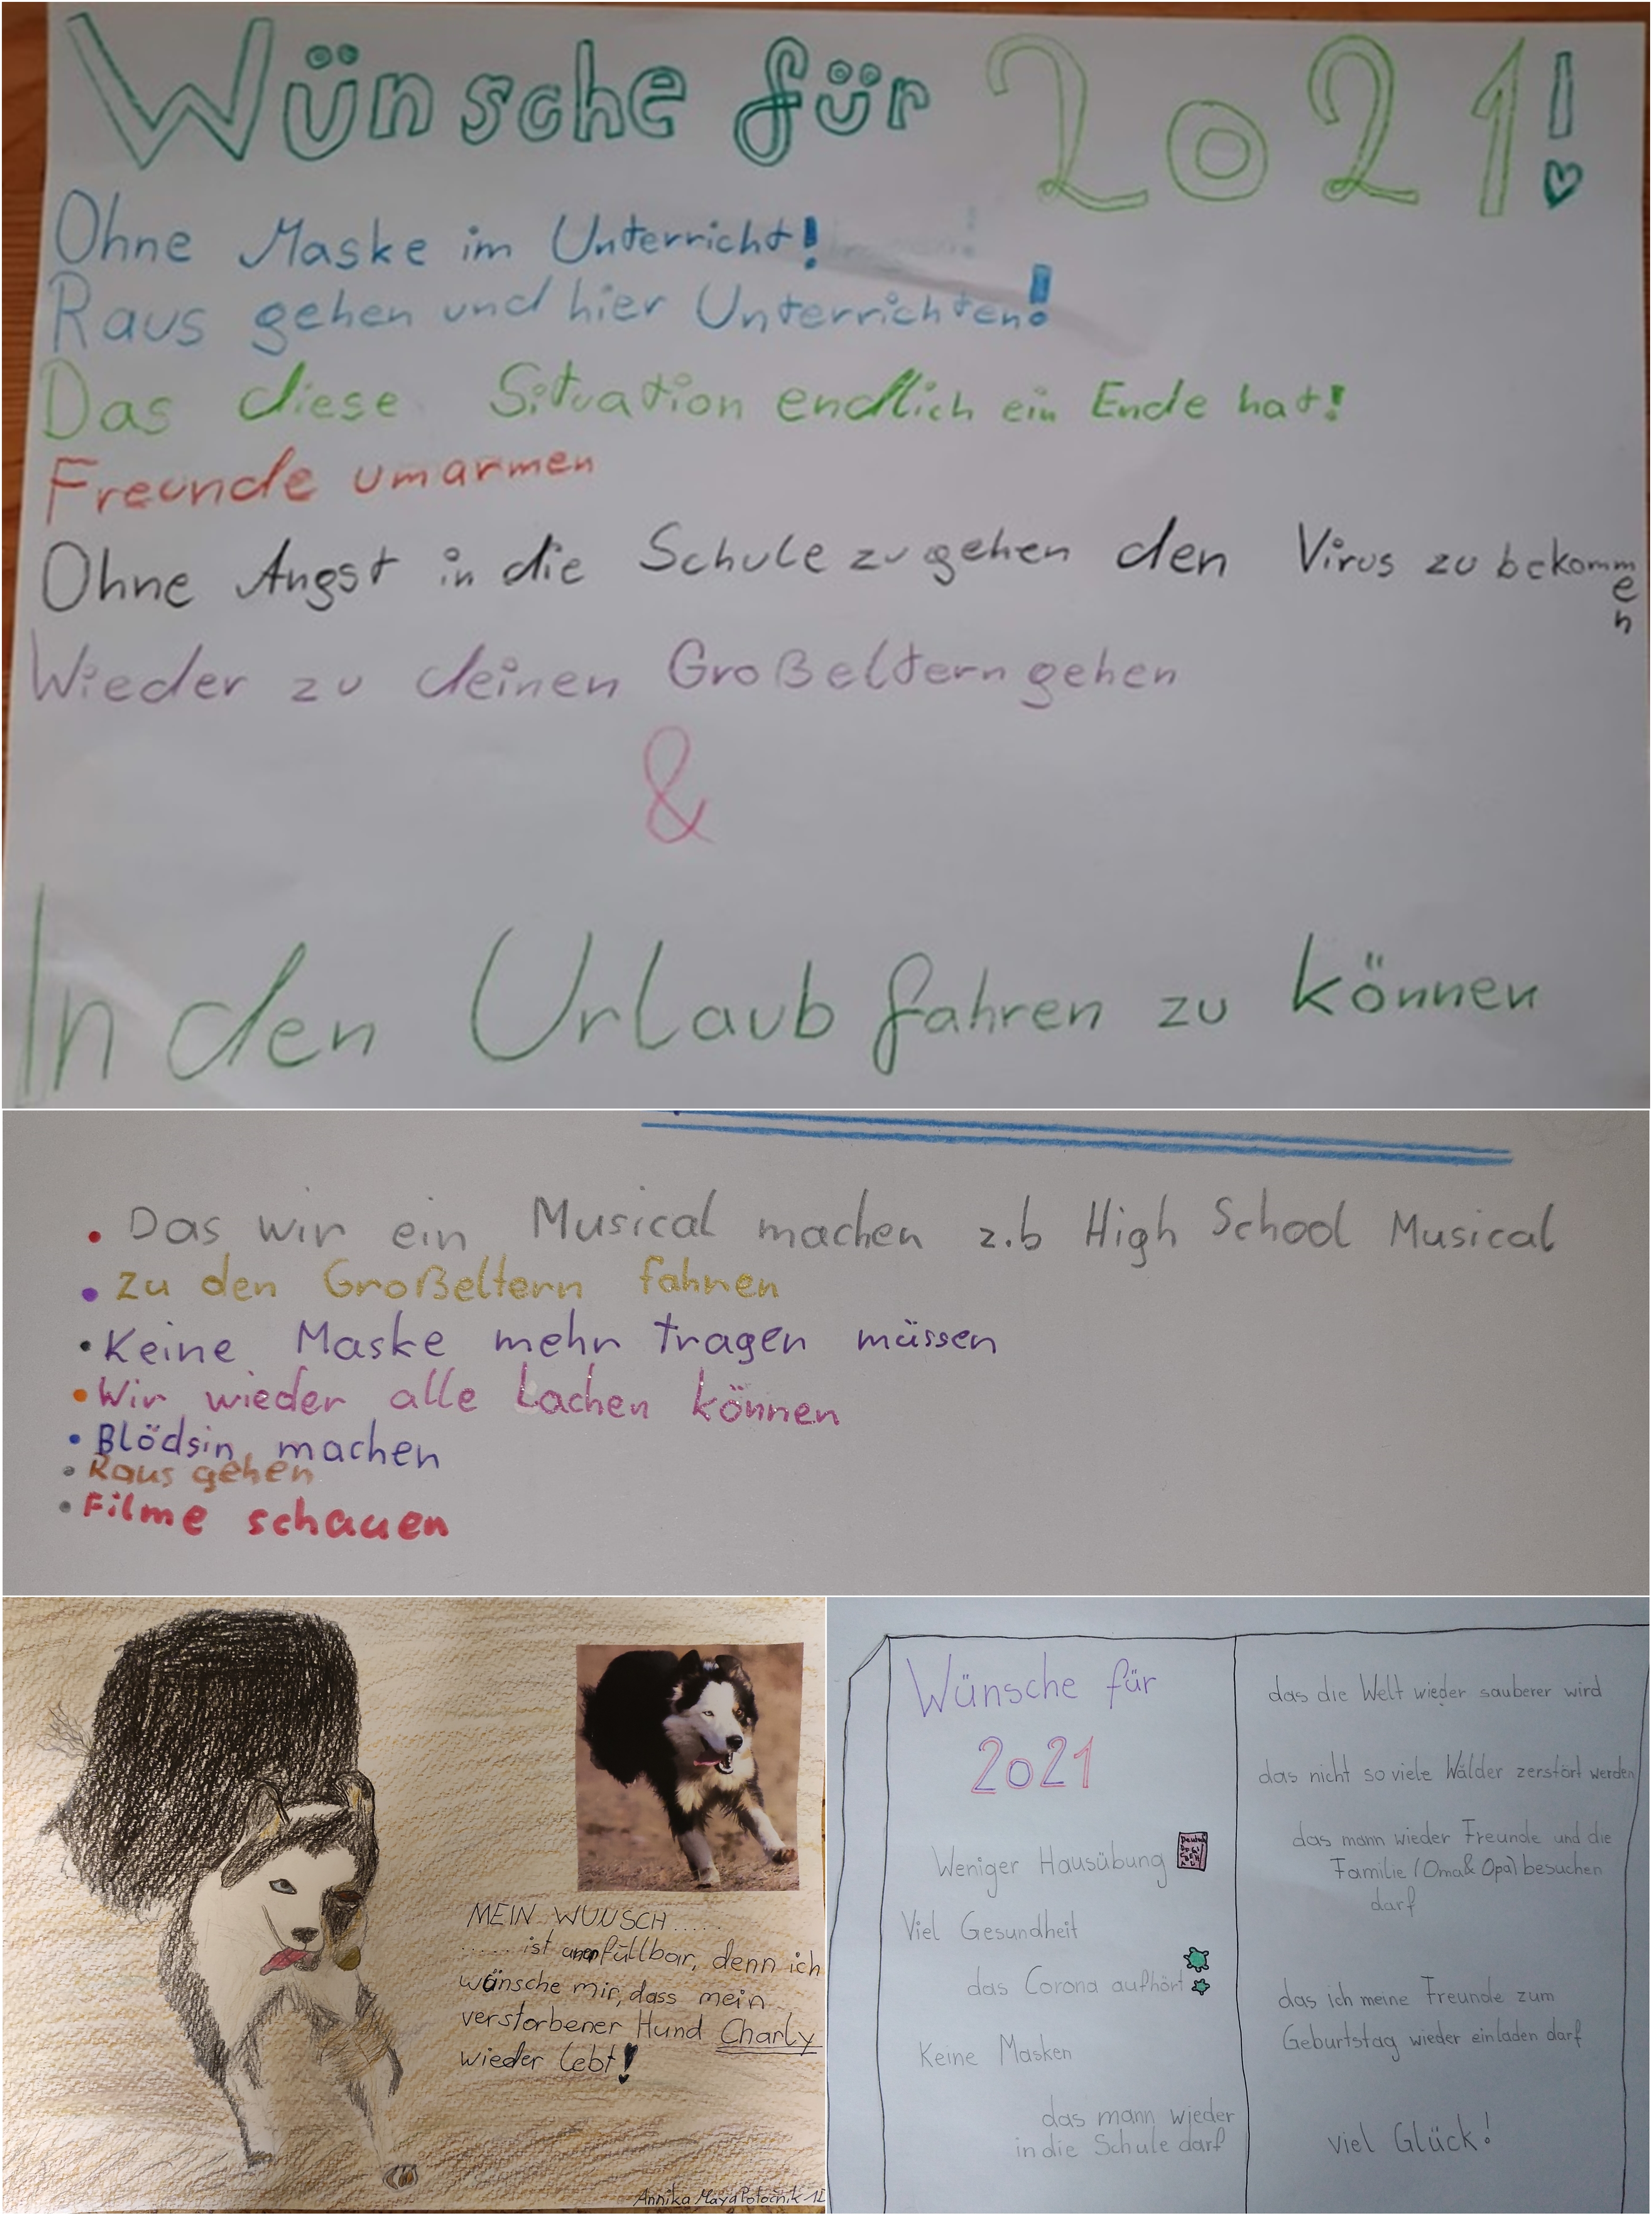 Wünsche für 2021!
Ohne Maske im Unterricht!
Raus gehen und hier Unterrichten!
Das diese Situation endlich ein Ende hat!
Freunde umarmen
Ohne Angst in die Schule zu gehen den Virus zu bekommen
Wieder zu deinen Großeltern gehen
&
In den Urlaub fahren zu können
• Das wir ein Musical machen z.b High School Musical
• Zu den Großeltern fahren
• Keine Maske mehr tragen müssen
• Wir wieder alle Lachen können
• Blödsin machen
• Raus gehen
• Filme schauen
MEIN WUNSCH.....
...... ist unerfüllbar, denn ich
wünsche mir, dass mein
verstorbener Hund Charly
wieder lebt!
Annika Maya Potocnik
Wünsche für
2021
Weniger Hausübung
Viel Gesundheit
das Corona aufhört
Keine Masken
das mann wieder
in die Schule darf
das die Welt wieder sauberer wird
das nicht so viele Wälder zerstört werden
das mann wieder Freunde und die
Familie (Oma & Opa) besuchen
darf
das ich meine Freunde zum
Geburtstag wieder einladen darf
viel Glück!